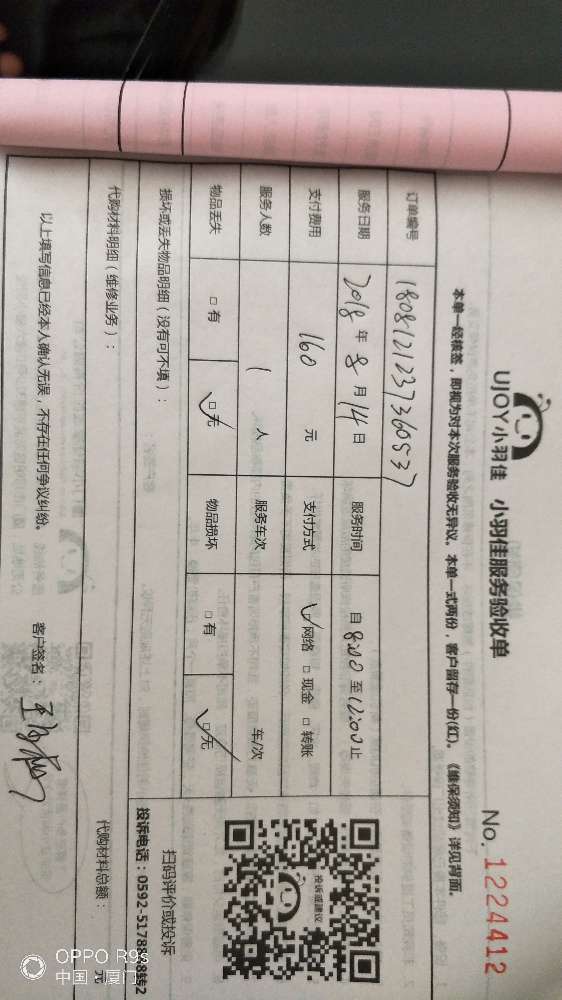 UJOY小羽佳 小羽佳服务验收单
No. 1224412
本单一经核签，即视为对本次服务验收无异议。本单一式两份，客户留存一份(红)。《维保须知》详见背面。
订单编号 1808121237360537
服务日期 2018 年 8 月 14 日 服务时间 自 8:00 至 12:00 止
支付费用 160 元 支付方式 ☑网络 □现金 □转账
服务人数 1 人 服务车次 车/次
物品丢失 □有 ☑无 物品损坏 □有 ☑无
损坏或丢失物品明细（没有可不填）：
投诉或建议
扫码评价或投诉
投诉电话：0592-5178808转2
代购材料明细（维修业务）： 代购材料总额： 元
以上填写信息已经本人确认无误，不存在任何争议纠纷。 客户签名：
OPPO R9s
中国·厦门